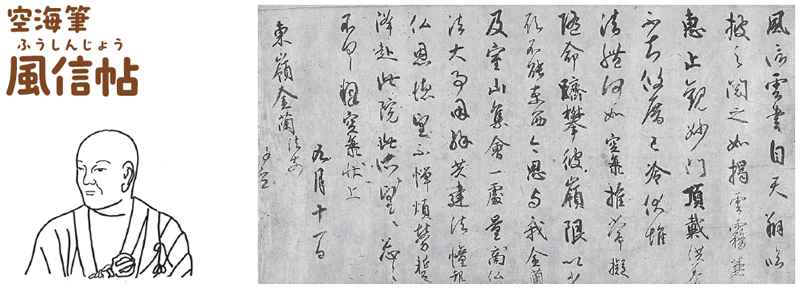 空海筆
ふうしんじょう
風信帖
風信雲書自天翔臨
披之閲之如掲雲霧兼
恵止觀妙門頂戴供養
不知攸厝已冷伏惟
法體何如空海推常擬
隨命躋攀彼嶺限以少
願不能東西今思与我金蘭
及室山集會一處量商仏
法大事因縁共建法幢報
仏恩徳望不憚煩勞蹔
降赴此院此所望々忩々
不具釋空海状上
九月十一日
東嶺金蘭法前